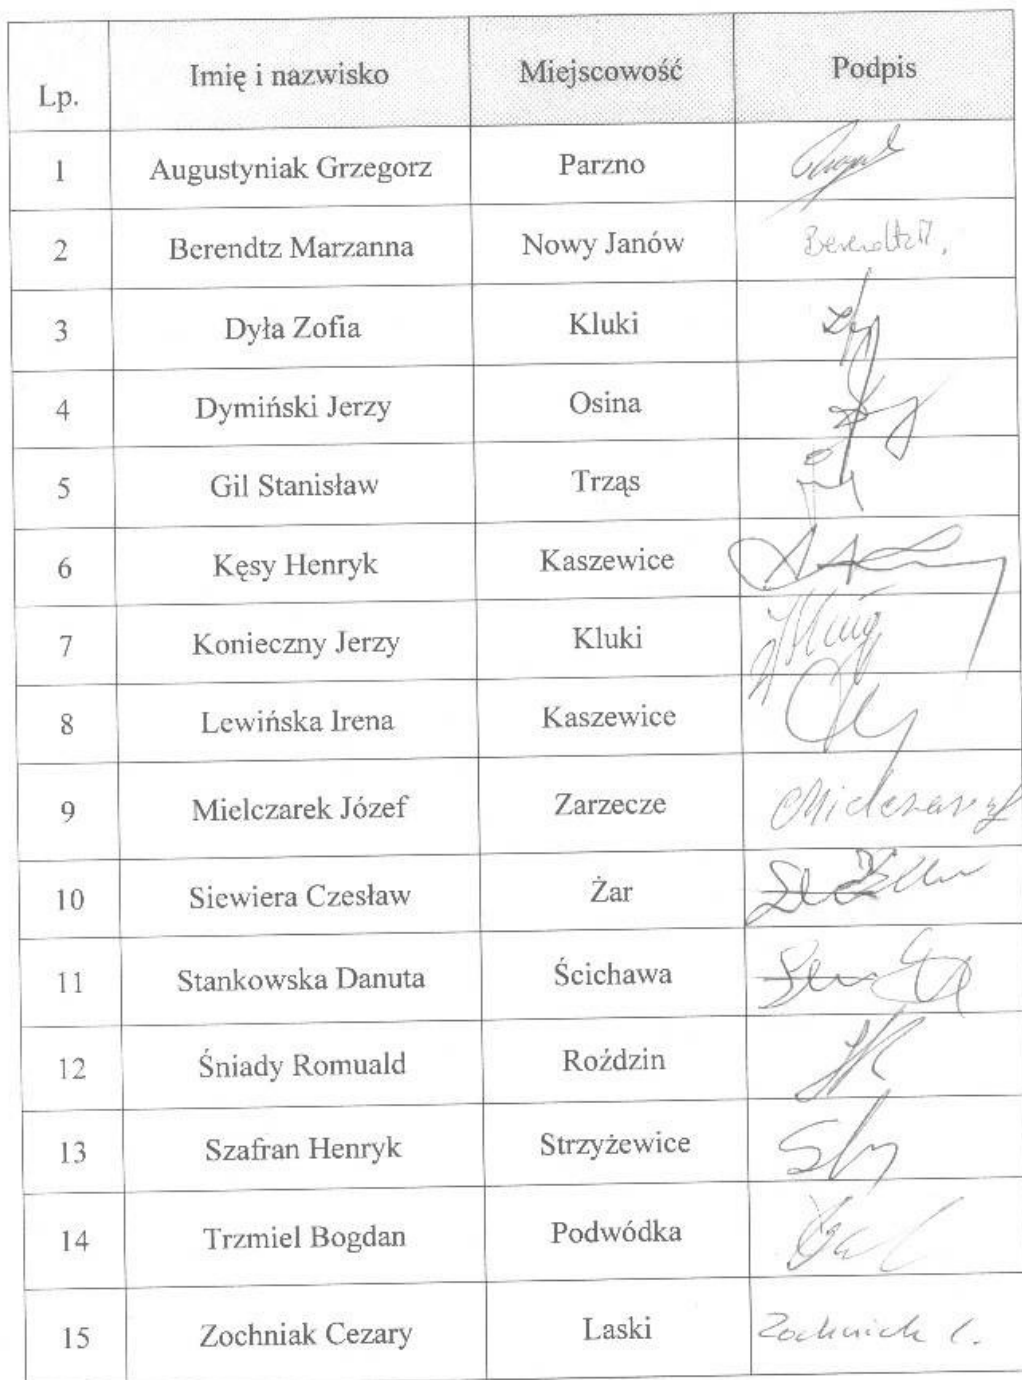 Lp. Imię i nazwisko Miejscowość Podpis
1 Augustyniak Grzegorz Parzno
2 Berendtz Marzanna Nowy Janów Berendtz M.
3 Dyła Zofia Kluki
4 Dymiński Jerzy Osina
5 Gil Stanisław Trząs
6 Kęsy Henryk Kaszewice
7 Konieczny Jerzy Kluki
8 Lewińska Irena Kaszewice
9 Mielczarek Józef Zarzecze
10 Siewiera Czesław Żar
11 Stankowska Danuta Ścichawa
12 Śniady Romuald Roździn
13 Szafran Henryk Strzyżewice
14 Trzmiel Bogdan Podwódka
15 Zochniak Cezary Laski Zochniak C.